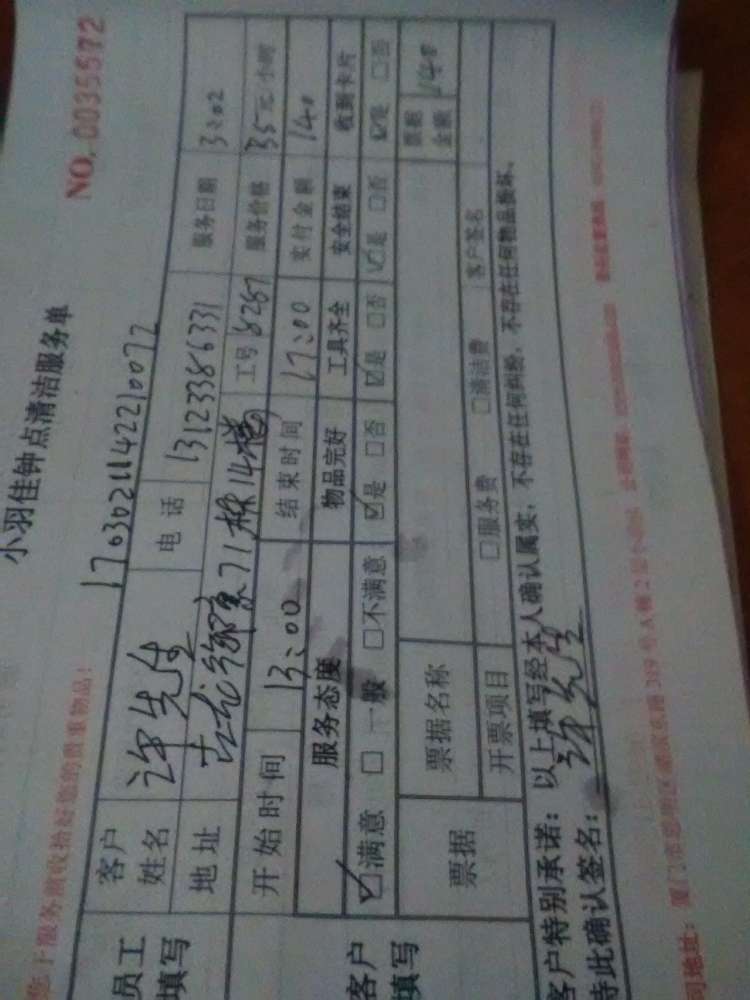 小羽佳钟点清洁服务单
NO. 0035572
您于服务前收拾好您的贵重物品！
1703021142210072
员工填写
客户姓名 许先生 电话 13123386331 服务日期 3:02
地址 古龙御景71栋14楼 工号 8267 服务价格 35元/小时
开始时间 13:00 结束时间 17:00 实付金额 140
客户填写
服务态度 物品完好 工具齐全 安全结束 收到卡片
☑满意 □一般 □不满意 ☑是 □否 ☑是 □否 ☑是 □否 ☑是 □否
票据 票据名称 票据金额 140
开票项目 □服务费 □清洁费 客户签名
客户特别承诺：以上填写经本人确认属实，不存在任何纠纷，不存在任何物品损坏。
特此确认签名：许先生
司地址：厦门市思明区